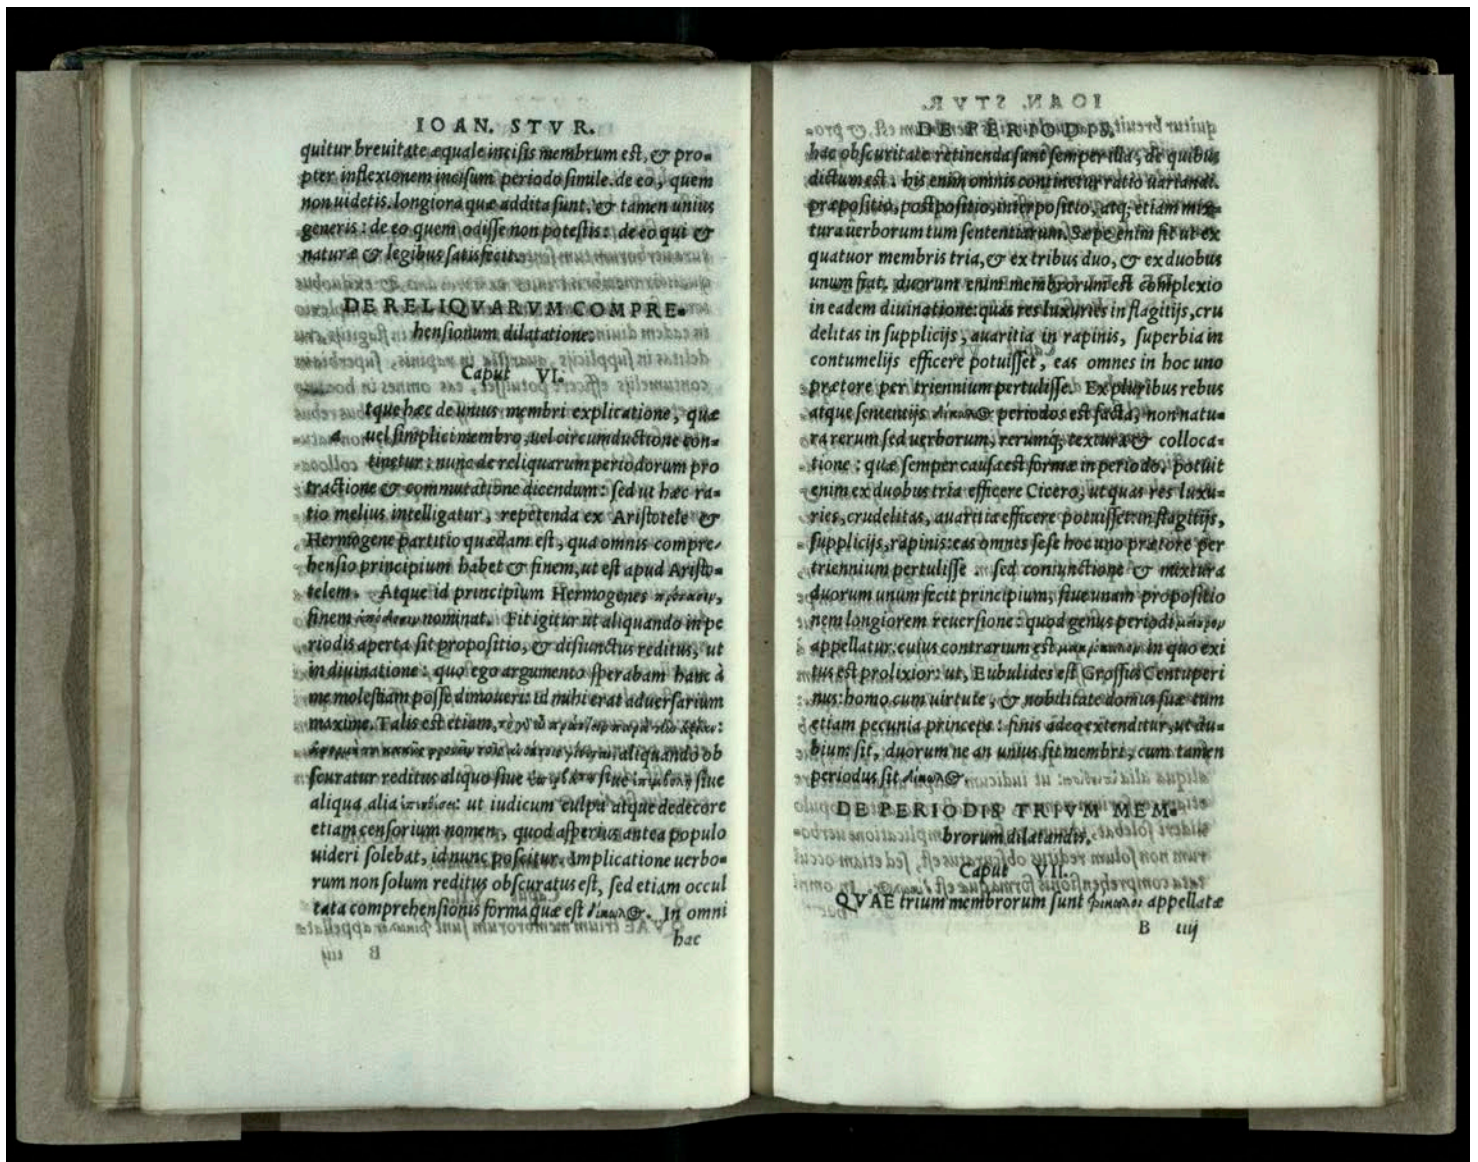 IOAN. STVR.
quitur breuitate æquale incisis membrum est, & pro-
pter inflexionem incisum periodo simile. de eo, quem
non uidetis. longiora quæ addita sunt, & tamen unius
generis: de eo quem odisse non potestis: de eo qui &
naturæ & legibus satisfecit.
DE RELIQVARVM COMPRE-
hensionum dilatatione.
Caput VI.
tque hæc de unius membri explicatione, quæ
a uel simplici membro, uel circumductione con-
tinetur: nunc de reliquarum periodorum pro
tractione & commutatione dicendum: sed ut hæc ra-
tio melius intelligatur, repetenda ex Aristotele &
Hermogene partitio quædam est, qua omnis compre-
hensio principium habet & finem, ut est apud Aristo-
telem. Atque id principium Hermogenes πρότασιν,
finem ἀπόδοσιν nominat. Fit igitur ut aliquando in pe
riodis aperta sit propositio, & disiunctus reditus, ut
in diuinatione: quo ego argumento sperabam hanc à
me molestiam posse dimoueri: id mihi erat aduersarium
maxime. Talis est etiam,
aliquando ob
scuratur reditus aliquo siue siue siue
aliqua alia ut iudicum culpa atque dedecore
etiam censorium nomen, quod asperius antea populo
uideri solebat, id nunc poscitur. Implicatione uerbo-
rum non solum reditus obscuratus est, sed etiam occul
tata comprehensionis forma quæ est δίκωλος. In omni
hac
DE PERIODIS.
hac obscuritate retinenda sunt semper illa, de quibus
dictum est. his enim omnis continetur ratio uariandi.
præpositio, postpositio, interpositio, atq; etiam mix-
tura uerborum tum sententiarum. Sæpe enim fit ut ex
quatuor membris tria, & ex tribus duo, & ex duobus
unum fiat. duorum enim membrorum est complexio
in eadem diuinatione: quas res luxuries in flagitijs, cru
delitas in supplicijs, auaritia in rapinis, superbia in
contumelijs efficere potuisset, eas omnes in hoc uno
prætore per triennium pertulisse. Ex pluribus rebus
atque sententijs δίκωλος periodos est facta, non natu-
ra rerum sed uerborum, rerumq; textura & colloca-
tione: quæ semper causa est formæ in periodo. potuit
enim ex duobus tria efficere Cicero, ut quas res luxu-
ries, crudelitas, auaritia efficere potuisset: in flagitijs,
supplicijs, rapinis: eas omnes sese hoc uno prætore per
triennium pertulisse. sed coniunctione & mixtura
duorum unum fecit principium, siue unam propositio
nem longiorem reuersione: quod genus periodi
appellatur. cuius contrarium est in quo exi
tus est prolixior: ut, Eubulides est Grossus Centuperi
nus: homo cum uirtute, & nobilitate domus suæ tum
etiam pecunia princeps: finis adeo extenditur, ut du-
bium sit, duorum ne an unius sit membri, cum tamen
periodus sit δίκωλος.
DE PERIODIS TRIVM MEM-
brorum dilatandis.
Caput VII.
QVAE trium membrorum sunt τρίκωλοι appellatæ
B iiij